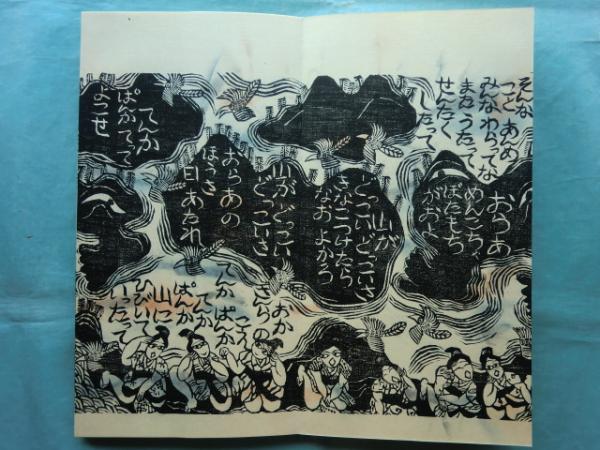 そんな
こと あんめ
みなわらってな
またうたって
せんたく
したって
おらあ
めんこちゃ
ぼたもち
がおよ
山が
どっこいどっこいさ
さなこつけたら
なお よかろ
山が どっこい
どっこいさ
おらあの
ほうさ
日 あたれ
てんか
ぱんかてって
よこせ
おか
さらの
こえ
てんか ぱんか
てんか
ぱんか
山に
ひびいて
いったって